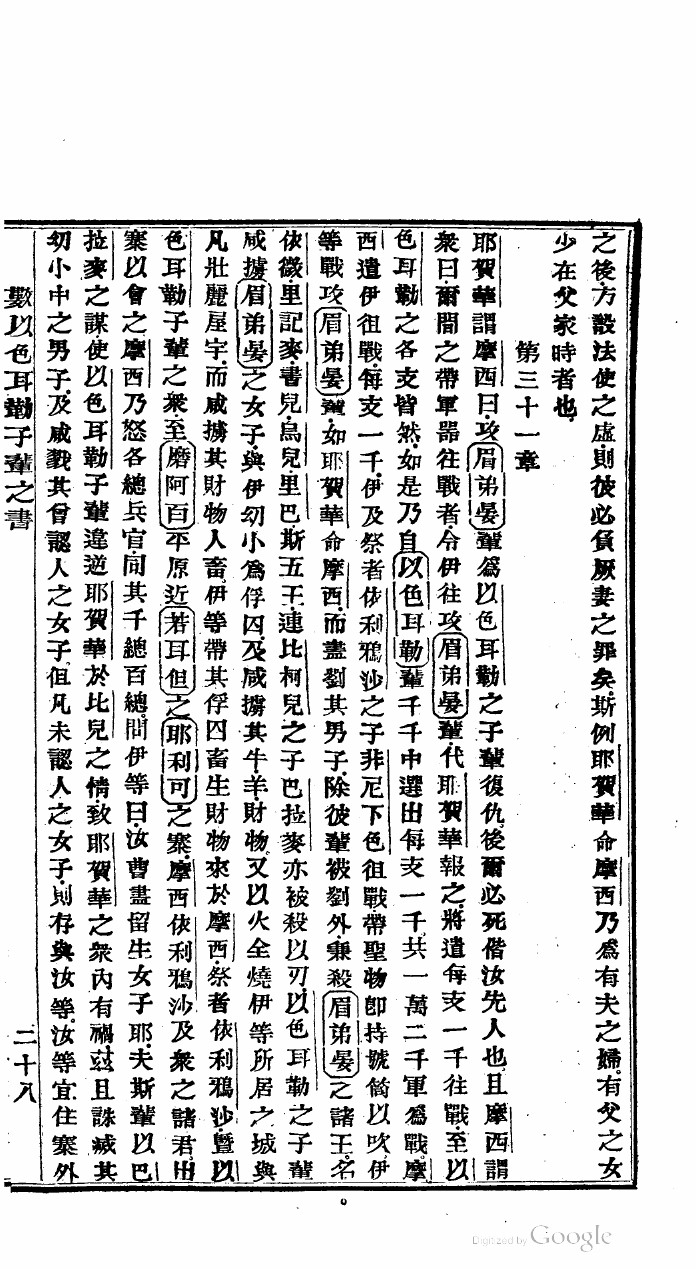 之後方設法使之虛則彼必負厥妻之罪矣斯例耶賀華命摩西乃爲有夫之婦有父之女
少在父家時者也
第三十一章
耶賀華謂摩西曰攻眉弟晏輩爲以色耳勒之子輩復仇後爾必死偕汝先人也且摩西謂
衆曰爾間之帶軍器往戰者令伊往攻眉弟晏輩代耶賀華報之將遣每支一千往戰至以
色耳勒之各支皆然如是乃自以色耳勒輩千千中選出每支一千共一萬二千軍爲戰摩
西遣伊徂戰每支一千伊及祭者依利鴉沙之子非尼下色徂戰帶聖物卽持號筒以吹伊
等戰攻眉弟晏輩如耶賀華命摩西而盡劉其男子除彼輩被劉外乘殺眉弟晏之諸王名
依微里記麥書兒烏兒里巴斯五王連比柯兒之子巴拉麥亦被殺以刃以色耳勒之子輩
咸擄眉弟晏之女子與伊幼小爲俘囚及咸擄其牛羊財物又以火全燒伊等所居之城與
凡壯麗屋宇而咸擄其財物人畜伊等帶其俘囚畜生財物來於摩西祭者依利鴉沙曁以
色耳勒子輩之衆至磨阿百平原近若耳但之耶利可之寨摩西依利鴉沙及衆之諸君出
寨以會之摩西乃怒各總兵官同其千總百總問伊等曰汝曹盡留生女子耶夫斯輩以巴
拉麥之謀使以色耳勒子輩違逆耶賀華於比兒之情致耶賀華之衆內有禍玆且誅滅其
幼小中之男子及咸戮其曾認人之女子但凡未認人之女子則存與汝等汝等宜住寨外
數以色耳勒子輩之書 二十八
Digitized by Google